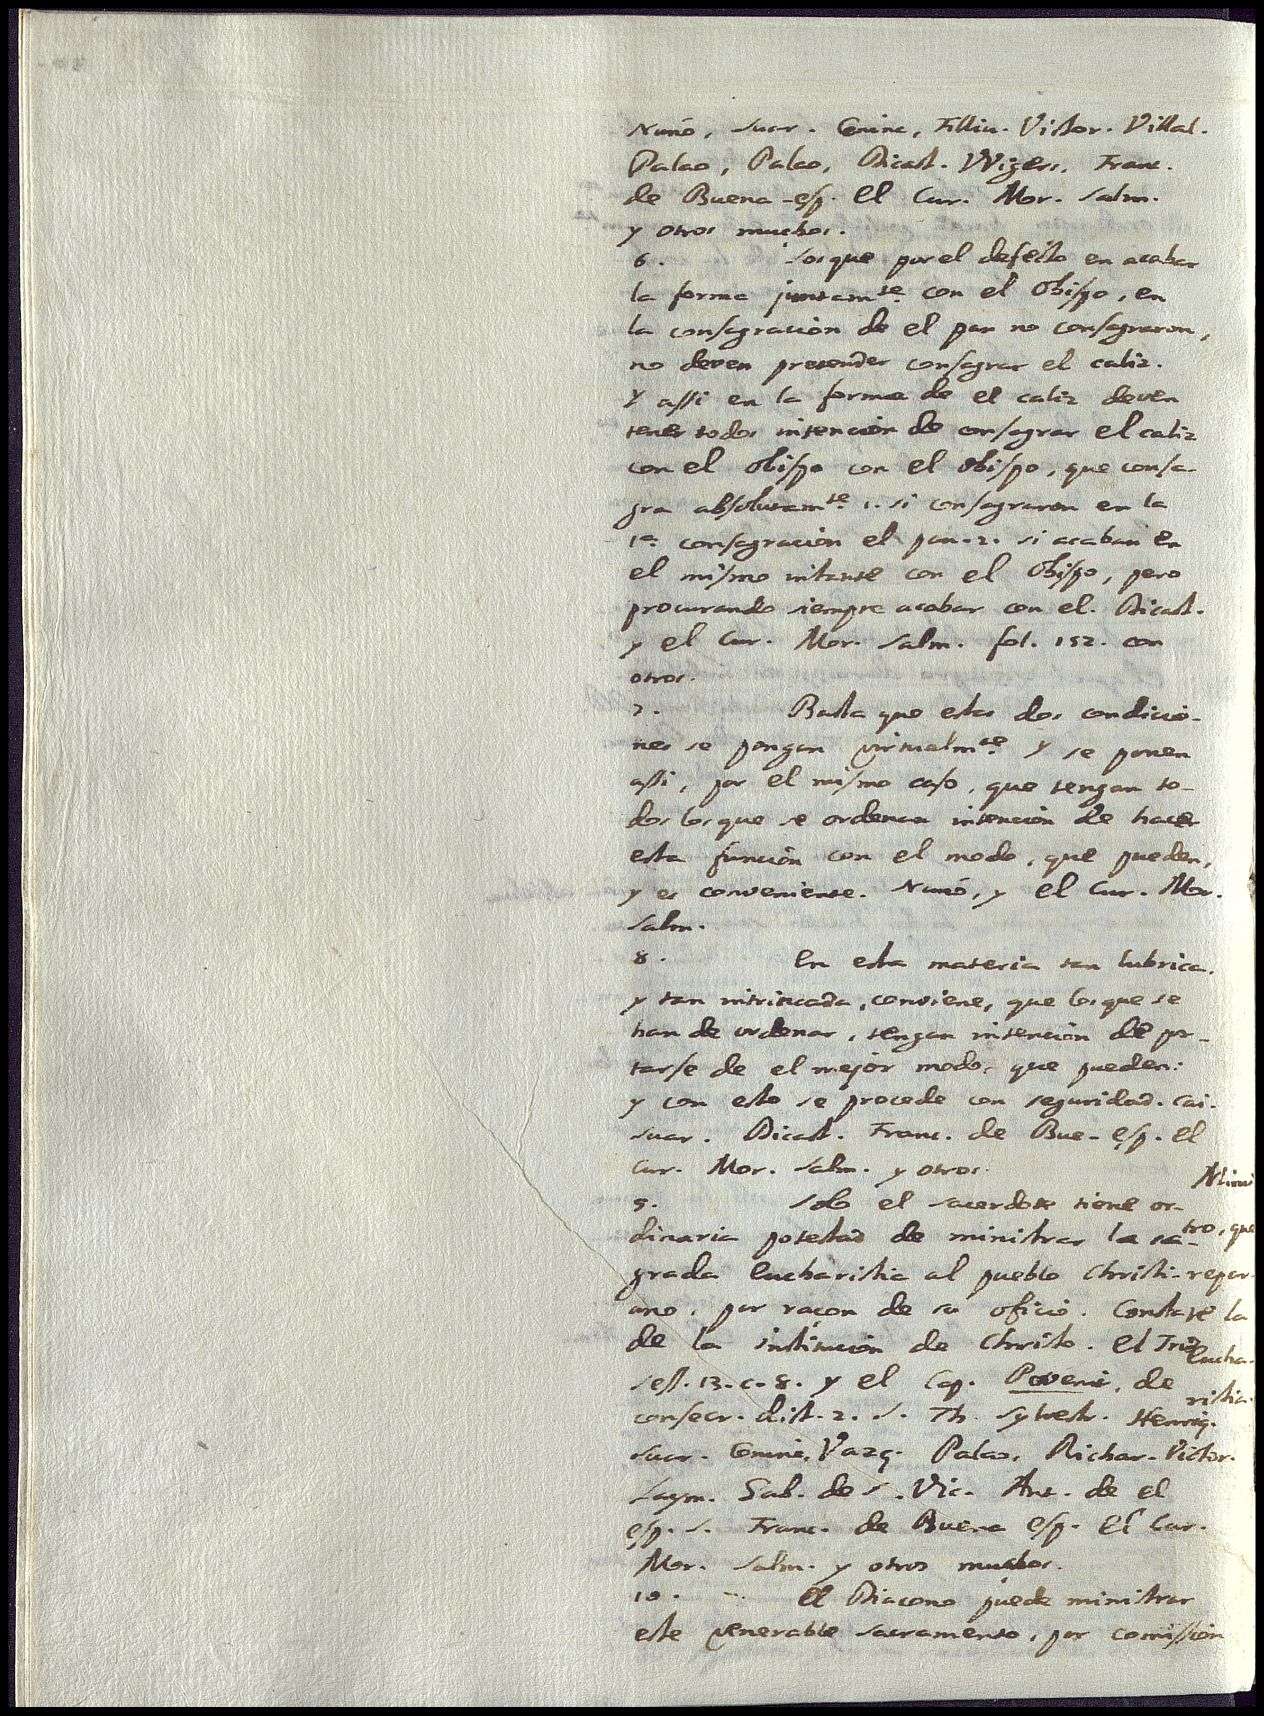 Nuño, Suar. Conine, Filliu. Victor. Villal.
Palao, Palao, Dicast. VVigers, Franc.
de Buena-esp. el Cur. Mor. Salm.
y otros muchos.
6. Los que por el defecto en acabar
la forma juntamte. con el Obispo, en
la consagración de el pan no consagraron,
no deven pretender consagrar el caliz.
Y assi en la forma de el caliz deven
tener todos intención de consagrar el caliz
con el obispo con el obispo, que consa-
gra absolutamte. 1. si consagraron en la
1a. consagración el pan. 2. si acaban en
el mismo instante con el Obispo, pero
procurando siempre acabar con el. Dicast.
y el Cur. Mor. Salm. fol. 152. con
otros.
7. Basta que estas dos condicio-
nes se pongan virtualmte. y se ponen
assi, por el mismo caso, que tengan to-
dos los que se ordenan intención de hacer
esta función con el modo, que pueden,
y es conveniente. Nuño, y el Cur. Mor.
Salm.
8. En esta materia tan lubrica.
y tan intrincada, conviene, que los que se
han de ordenar, tengan intención de por-
tarse de el mejor modo, que pueden:
y con esto se procede con seguridad. Cai.
Suar. Dicast. Franc. de Bue-esp. el
Cur. Mor. Salm. y otros.
9. Solo el sacerdote tiene or-
dinaria potestad de ministrar la sa-
grada Eucharistia al pueblo Christi-
ano, por raçon de su oficio. Consta
de la institución de Christo. el Trid.
sess. 13. c. 8. y el Cap. Pervenit, de
consecr. dist. 2. S. Th. Sylvestr. Henriq.
Suar. Conine, Vazq. Palao, Richar. Victor.
Laym. Sab. de S. Vic. Ant. de el
esp. S. Franc. de Buena esp. el Cur.
Mor. Salm. y otros muchos.
10. El Diacono puede ministrar
este venerable sacramento, por comissión
Minis
tro, que
repar-
te la
Eucha-
ristia.